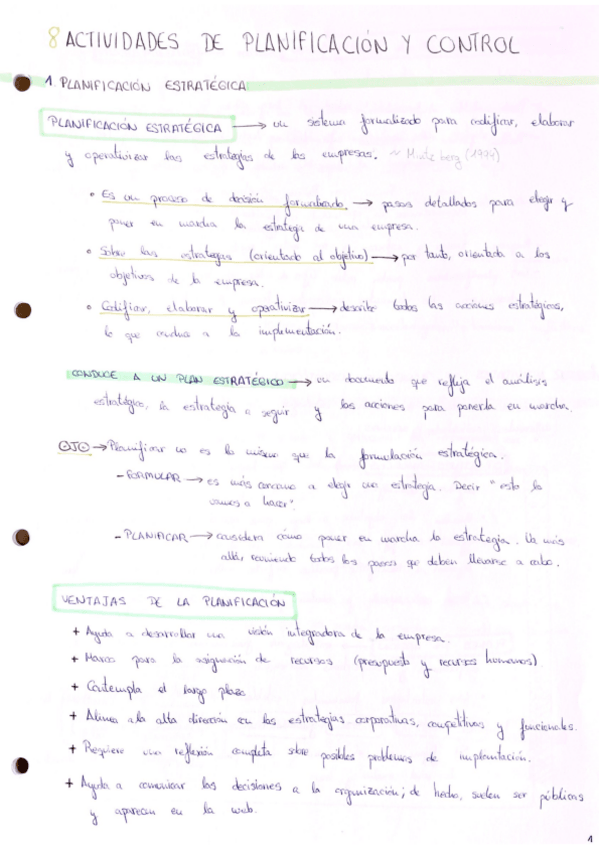 8 ACTIVIDADES DE PLANIFICACIÓN Y CONTROL
1. PLANIFICACIÓN ESTRATÉGICA
PLANIFICACIÓN ESTRATÉGICA → un sistema formalizado para codificar, elaborar
y operativizar las estrategias de las empresas. ~ Mintzberg (1994)
• Es un proceso de decisión formalizado → pasos detallados para elegir y
poner en marcha la estrategia de una empresa.
• Sobre las estrategias (orientado al objetivo) → por tanto, orientada a los
objetivos de la empresa.
• Codificar, elaborar y operativizar → describe todas las acciones estratégicas,
lo que conduce a la implementación.
CONDUCE A UN PLAN ESTRATÉGICO → un documento que refleja el análisis
estratégico, la estrategia a seguir y las acciones para ponerla en marcha.
OJO → Planificar no es lo mismo que la formulación estratégica.
- FORMULAR → es más cercano a elegir una estrategia. Decir "esto lo
vamos a hacer".
- PLANIFICAR → considera cómo poner en marcha la estrategia. Va más
allá, reuniendo todos los pasos que deben llevarse a cabo.
VENTAJAS DE LA PLANIFICACIÓN
+ Ayuda a desarrollar una visión integradora de la empresa.
+ Marco para la asignación de recursos (presupuesto y recursos humanos)
+ Contempla el largo plazo
+ Alinea a la alta dirección en las estrategias corporativas, competitivas y funcionales.
+ Requiere una reflexión completa sobre posibles problemas de implantación.
+ Ayuda a comunicar las decisiones a la organización; de hecho, suelen ser públicas
y aparecen en la web.
1